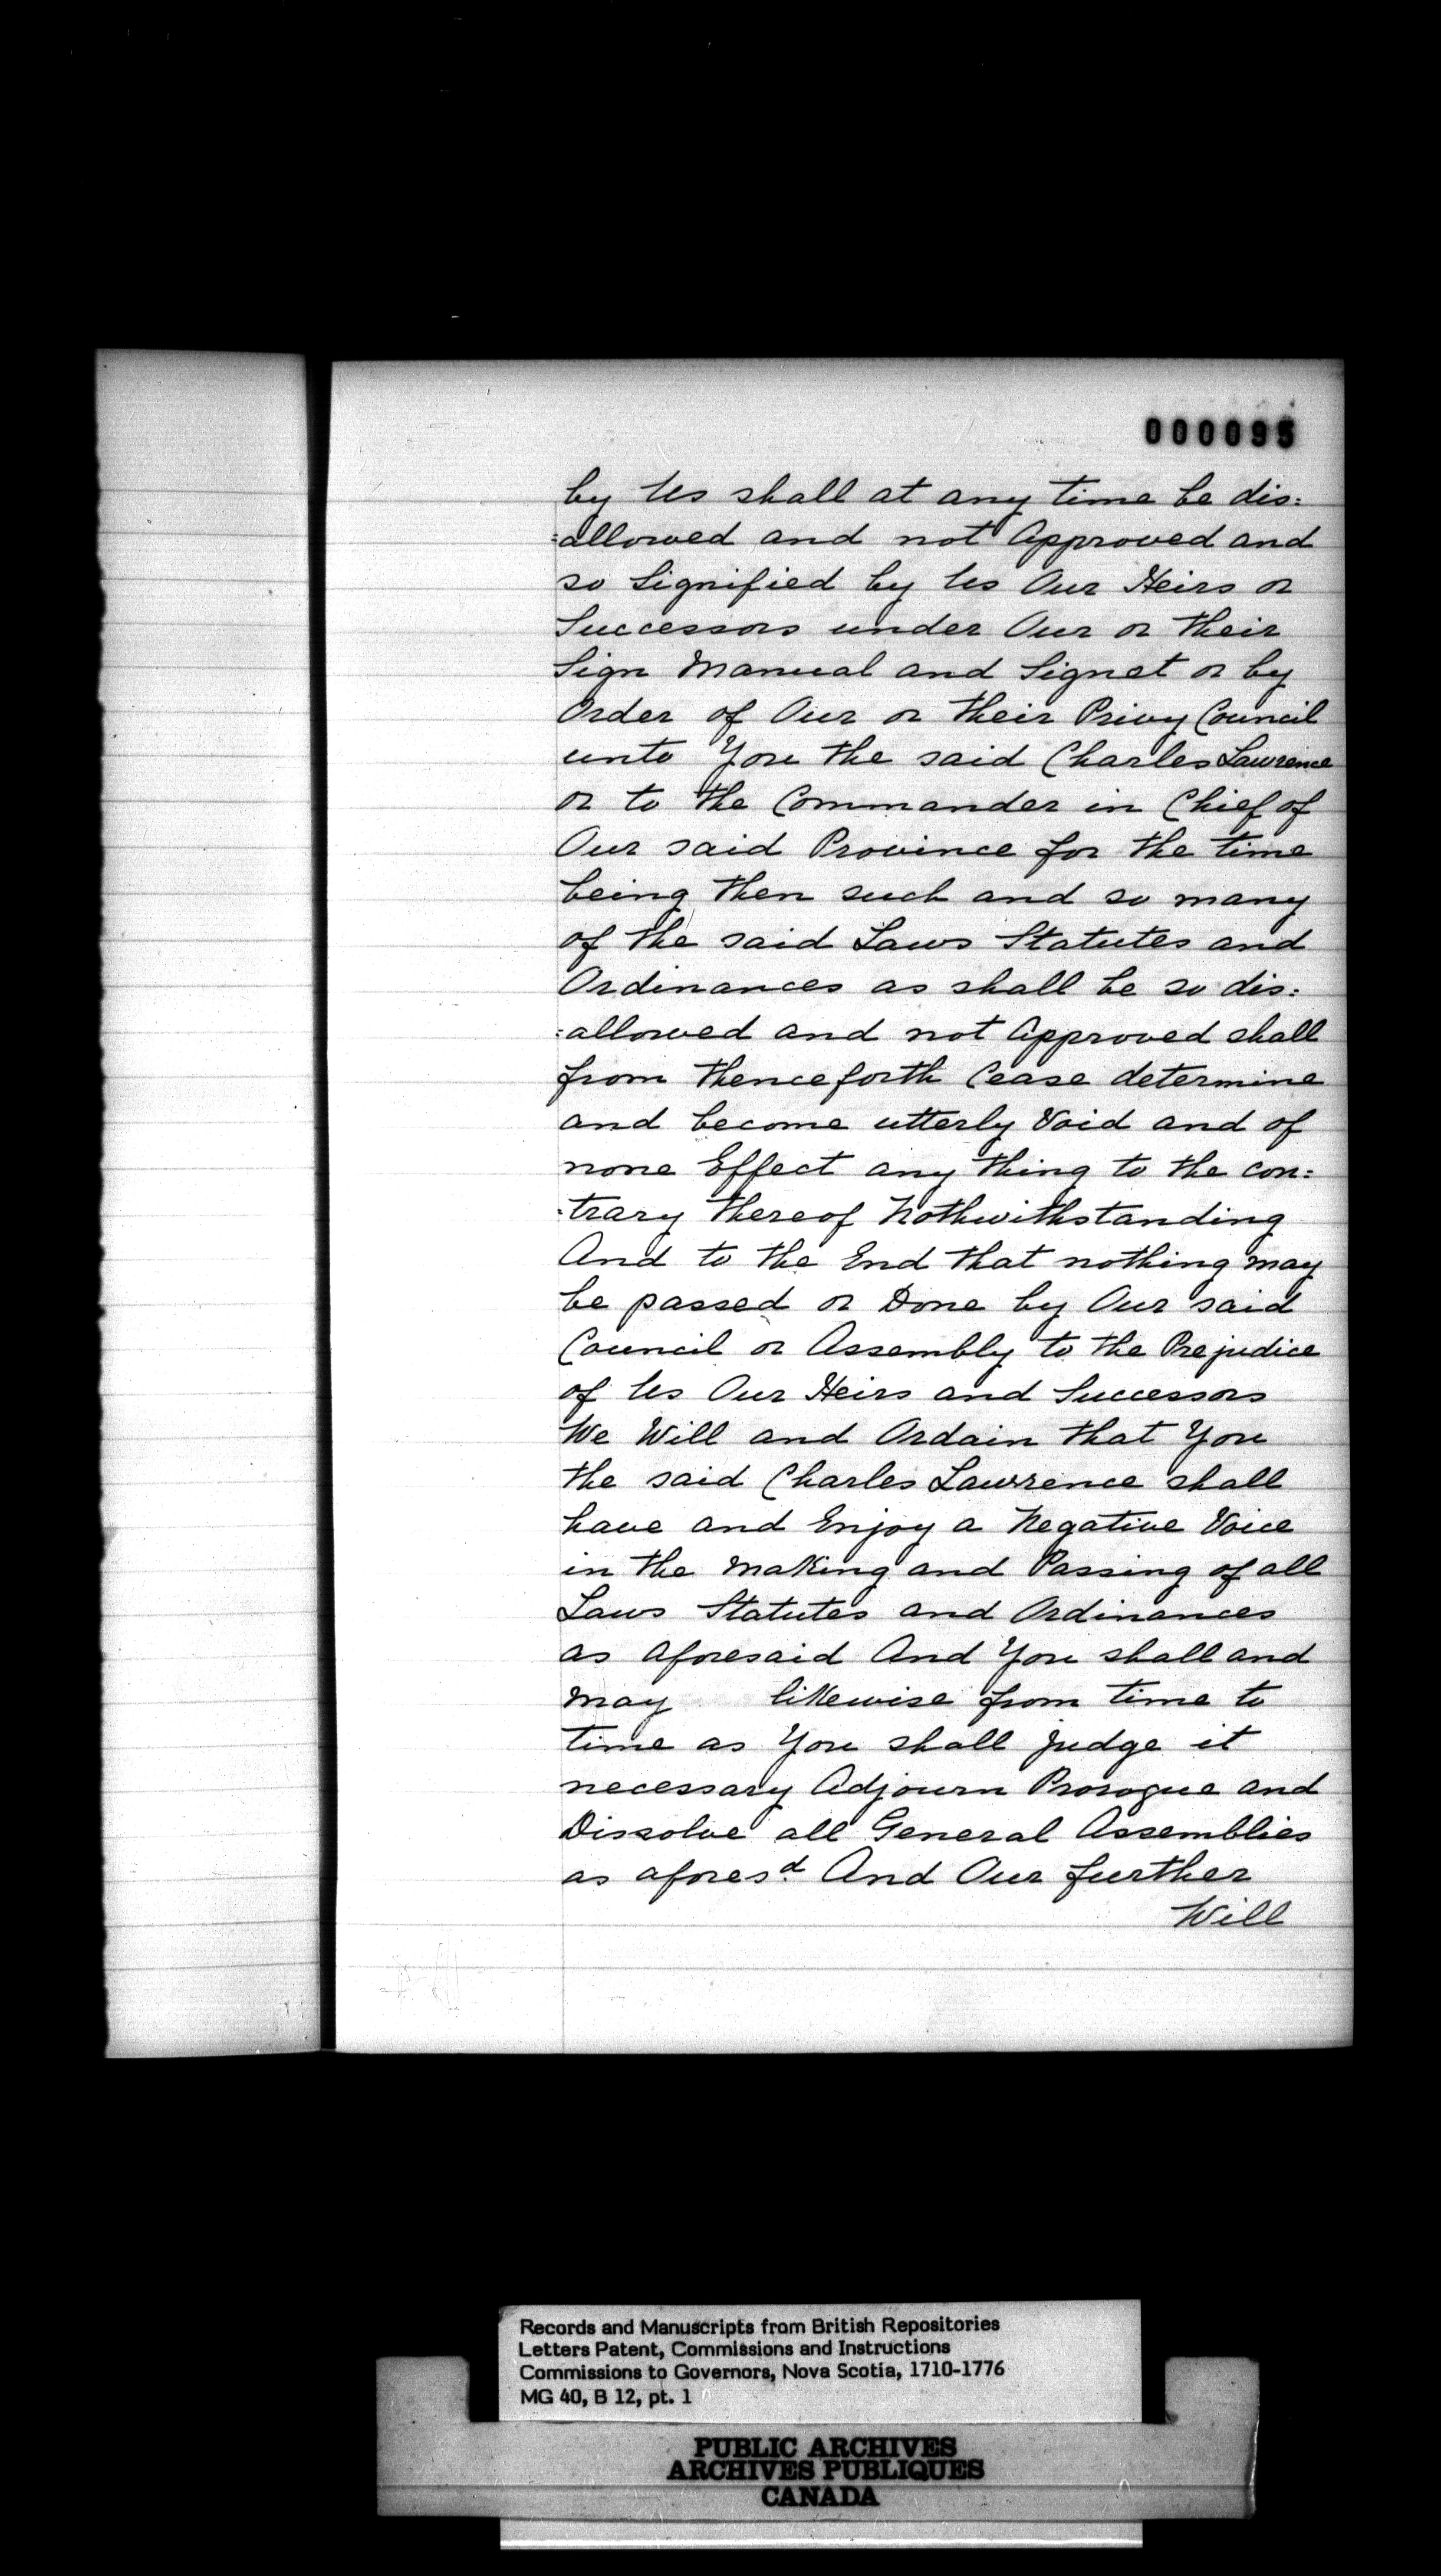 000095
by Us shall at any time be dis:
:allowed and not Approved and
so Signified by Us Our Heirs or
Successors under Our or their
Sign Manual and Signet or by
Order of Our or their Privy Council
unto You the said Charles Lawrence
or to the Commander in Chief of
Our said Province for the time
being then such and so many
of the said Laws Statutes and
Ordinances as shall be so dis:
:allowed and not Approved shall
from thenceforth Cease determine
and become utterly Void and of
none Effect any thing to the con:
:trary thereof Nothwithstanding
And to the End that nothing may
be passed or Done by Our said
Council or Assembly to the Prejudice
of Us Our Heirs and Successors
We Will and Ordain that You
the said Charles Lawrence shall
have and Enjoy a Negative Voice
in the Making and Passing of all
Laws Statutes and Ordinances
as aforesaid And You shall and
may likewise from time to
time as You shall judge it
necessary Adjourn Prorogue and
Dissolve all General Assemblies
as afores.d And Our further
Will
Records and Manuscripts from British Repositories
Letters Patent, Commissions and Instructions
Commissions to Governors, Nova Scotia, 1710-1776
MG 40, B 12, pt. 1
PUBLIC ARCHIVES
ARCHIVES PUBLIQUES
CANADA